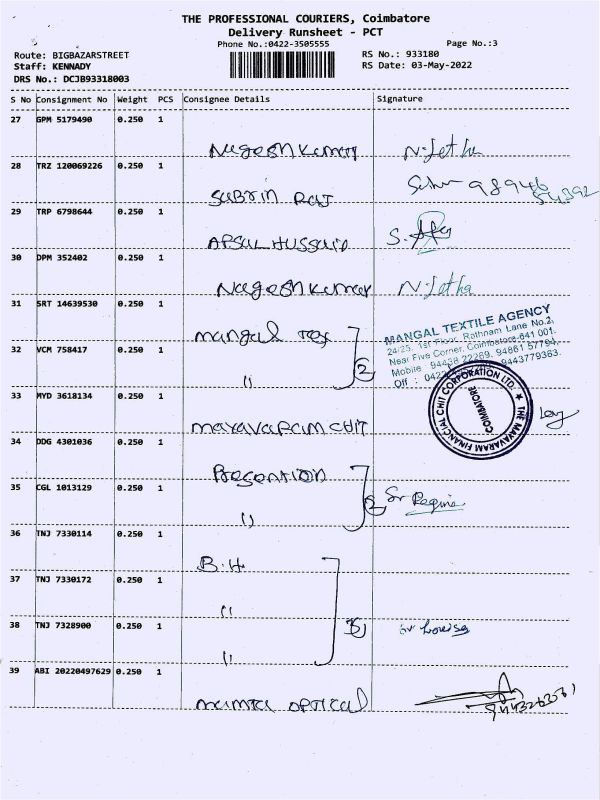 THE PROFESSIONAL COURIERS, Coimbatore
Delivery Runsheet - PCT
Phone No.:0422-3505555
Page No.:3
Route: BIGBAZARSTREET
RS No.: 933180
Staff: KENNADY
RS Date: 03-May-2022
DRS No.: DCJB93318003
S No Consignment No Weight PCS Consignee Details Signature
27 GPM 5179490 0.250 1
Nageshkumar N.Jetha
28 TRZ 120069226 0.250 1
Subrin Raj 98946 54392
29 TRP 6798644 0.250 1
Apsal Hussain S.
30 DPM 352402 0.250 1
Nageshkumar N.Jetha
31 SRT 14639530 0.250 1
mangal Tex
MANGAL TEXTILE AGENCY
24/25, 1st Floor, Rathnam Lane No.2,
Near Five Corner, Coimbatore-641 001.
Mobile : 94438 22289, 94861 57794,
Off : 0422 9443779363.
32 VCM 758417 0.250 1
" 2
33 MYD 3618134 0.250 1
mayavaram chit
THE MAYAVARAM FINANCIAL CHIT CORPORATION LTD. ★
COIMBATORE
34 DDG 4301036 0.250 1
Presention
35 CGL 1013129 0.250 1
" 2 Sr Regina
36 TNJ 7330114 0.250 1
B.H
37 TNJ 7330172 0.250 1
"
38 TNJ 7328900 0.250 1
" 3 Sr Louisa
39 ABI 20220497629 0.250 1
mamta optical